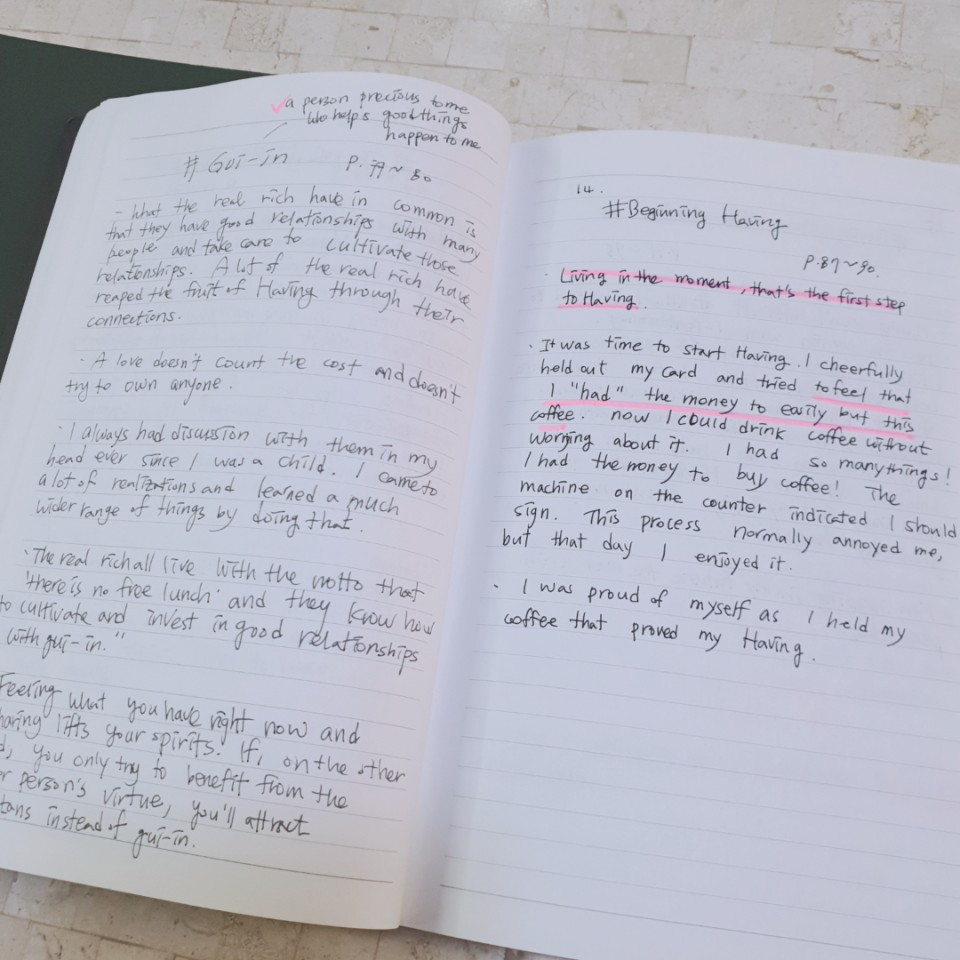 a person precious to me
who helps good things
happen to me
# Gui-in P. 77 ~ 80
- What the real rich have in common is
that they have good relationships with many
people and take care to cultivate those
relationships. A lot of the real rich have
reaped the fruit of Having through their
connections.
· A love doesn't count the cost and doesn't
try to own anyone.
· I always had discussion with them in my
head ever since I was a child. I came to
a lot of realizations and learned a much
wider range of things by doing that.
· The real rich all live with the motto that
'there is no free lunch' and they know how
to cultivate and invest in good relationships
with gui-in."
Feeling what you have right now and
lifts your spirits. If, on the other
you only try to benefit from the
person's virtue, you'll attract
instead of gui-in.
14.
#Beginning Having
P.87~90.
· Living in the moment, that's the first step
to Having.
· It was time to start Having. I cheerfully
held out my card and tried to feel that
I "had" the money to easily but this
coffee. now I could drink coffee without
worrying about it. I had so many things!
I had the money to buy coffee! The
machine on the counter indicated I should
sign. This process normally annoyed me,
but that day I enjoyed it.
· I was proud of myself as I held my
coffee that proved my Having.